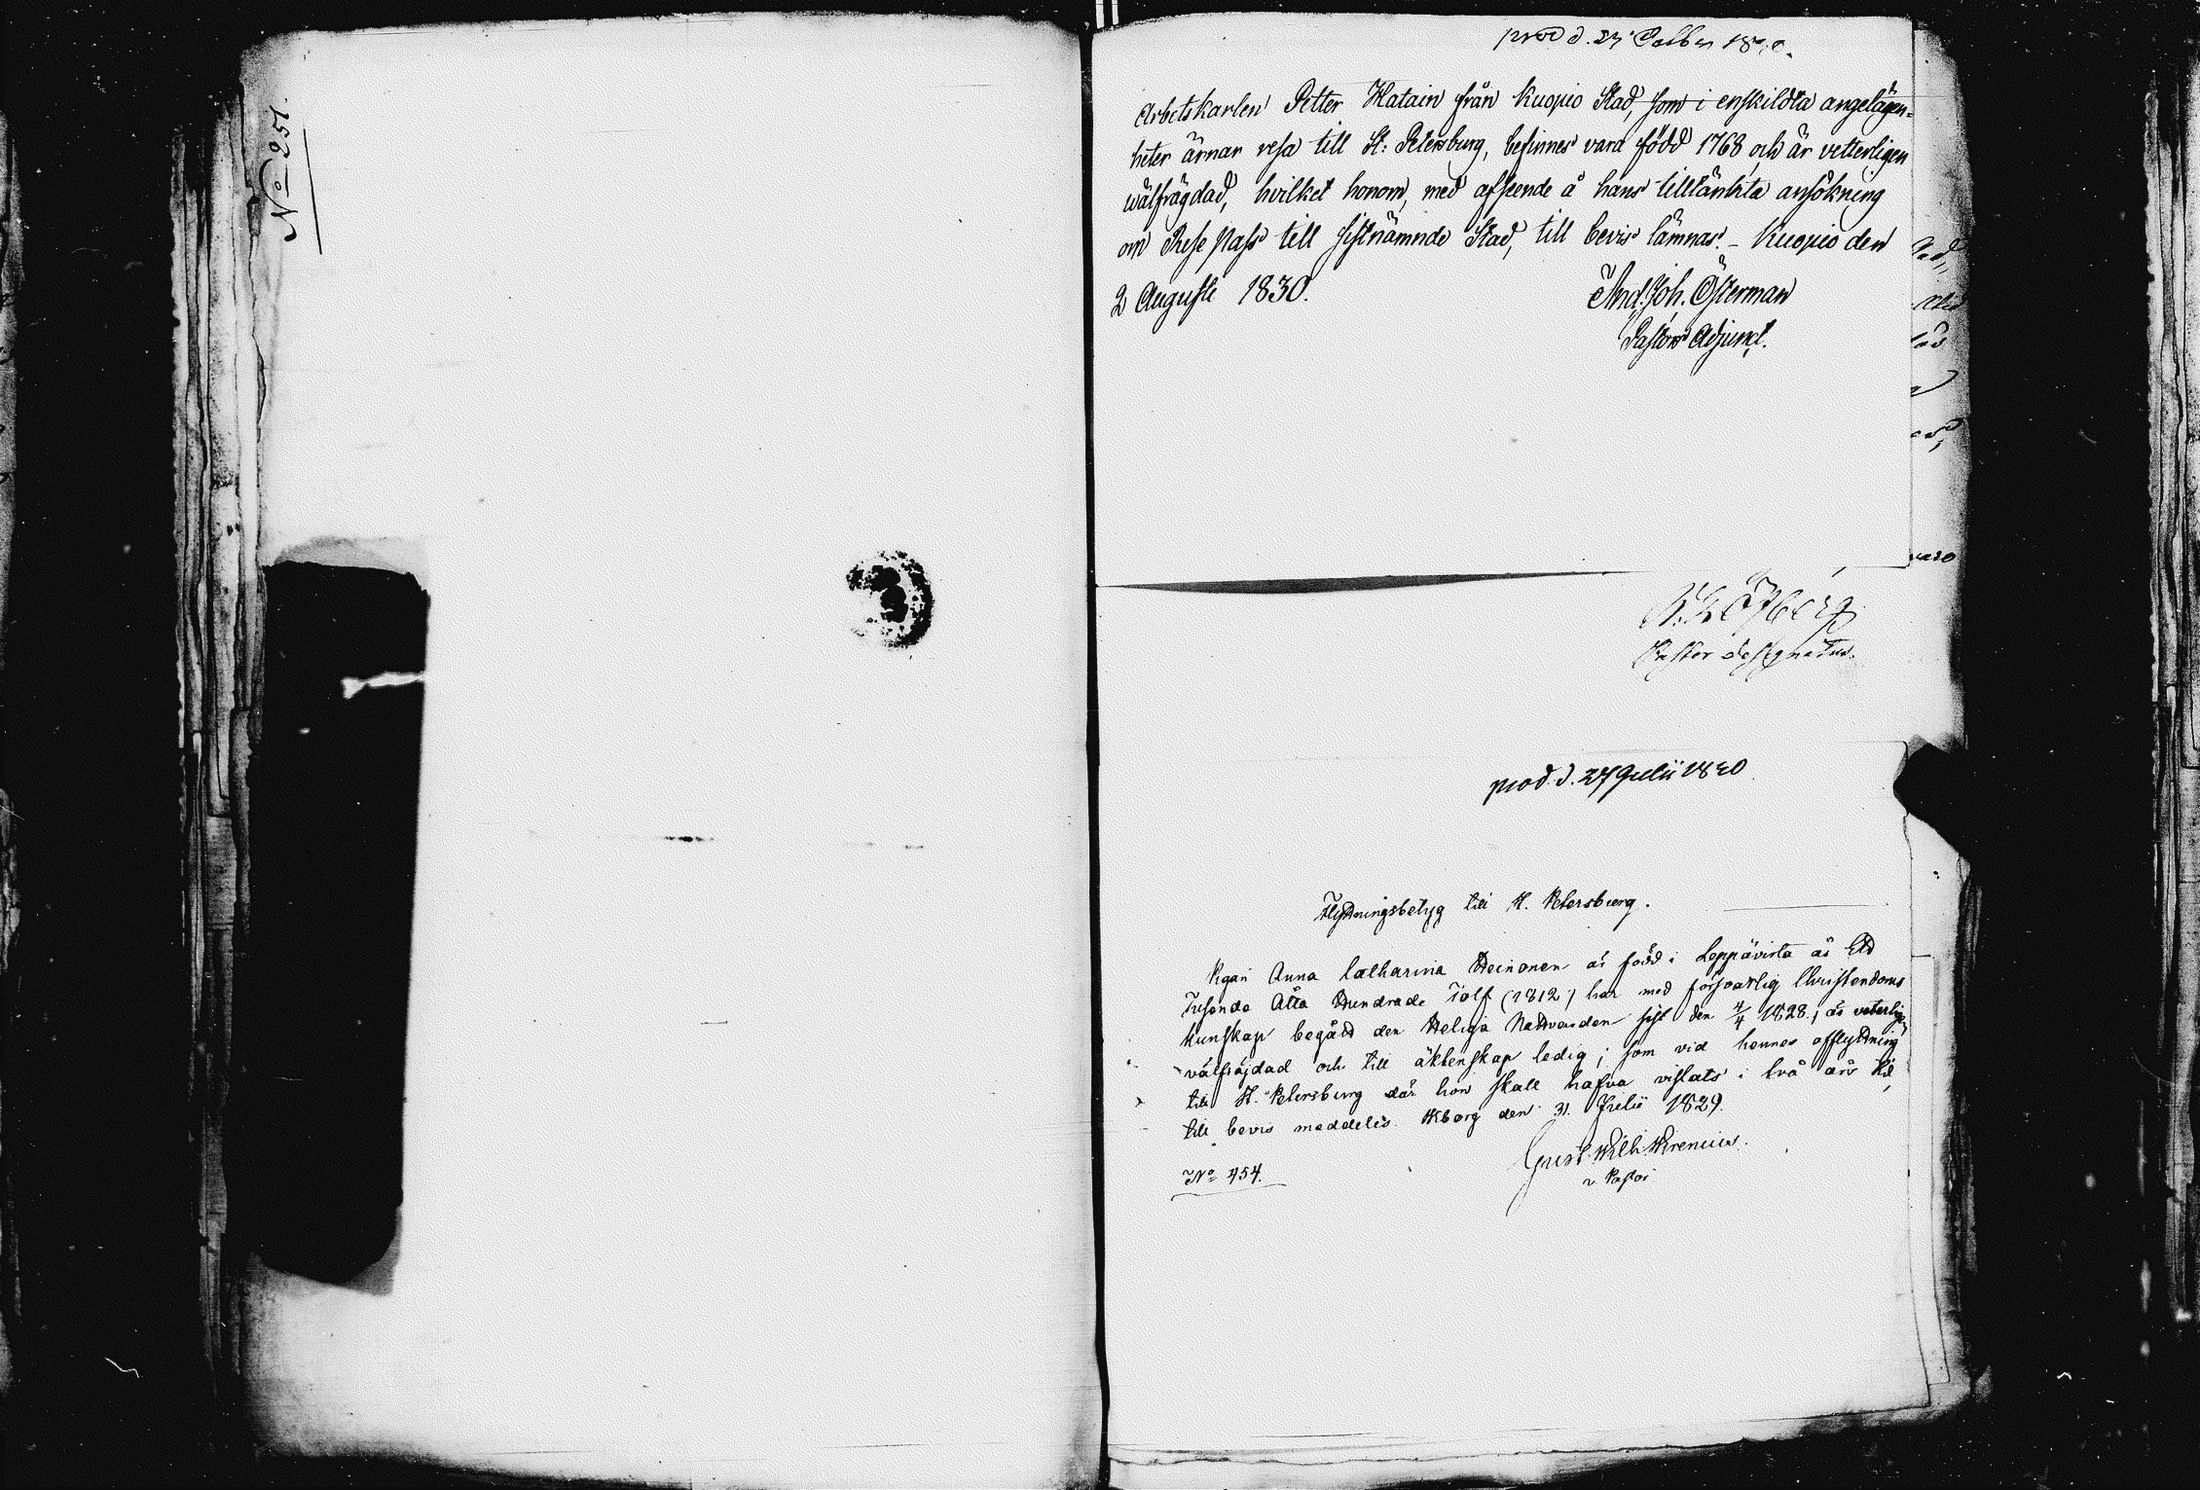 No 251.
prod d. 27 Octber 1830.
Arbetskarlen Petter Hatain från Kuopio Stad, som i enskildta angelägen-
heter ärnar resa till St: Petersburg, befinnes vara född 1768 och är vetterligen
wälfrägdad, hvilket honom, med afseende å hans tilltänkta ansökning
om Rese pass till sistnämnde Stad, till bevis lämnas. - Kuopio den
2 Augusti 1830.
And. Joh. Österman
Pastors Adjunct.
Pastor designatus.
prod. d. 27 Julii 1830
Flyttningsbetyg till St. Petersburg.
Pigan Anna Catharina Heinonen är född i Leppävirta år Ett
Tusende Åtta Hundrade Tolf (1812) har med försvarlig Christendoms
kunskap begådt den Heliga Nattvarden sist den 4/4 1828; är veterlig
välfräjdad och till äktenskap ledig; som vid hennes afflyttning
till St. Petersburg där hon skall hafva vistats i två års tid,
till bevis meddelas. Wiborg den 31. Julii 1829.
Gust. Wilh. Wirenius.
v. Pastor
No 454.